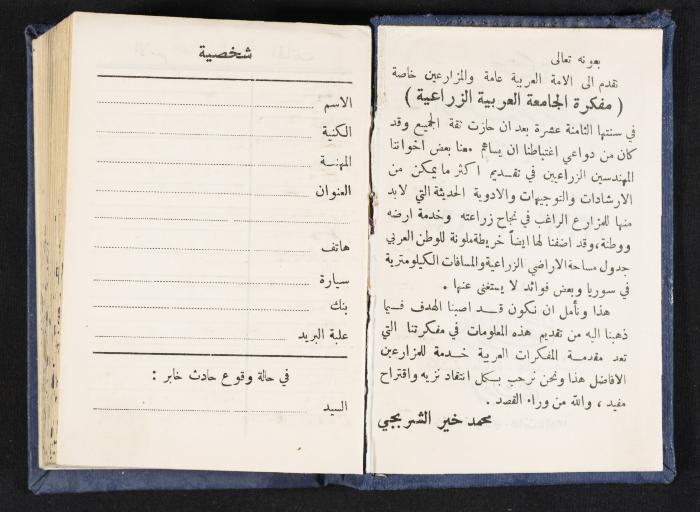 بعونه تعالى
نقدم الى الامة العربية عامة والمزارعين خاصة
( مفكرة الجامعة العربية الزراعية )
في سنتها الثامنة عشرة بعد ان حازت ثقة الجميع وقد
كان من دواعي اغتباطنا ان يساهم معنا بعض اخواننا
المهندسين الزراعيين في تقديم اكثر ما يمكن من
الارشادات والتوجيهات والادوية الحديثة التي لابد
منها للمزارع الراغب في نجاح زراعته وخدمة ارضه
ووطنة، وقد اضفنا لها ايضاً خريطة ملونة للوطن العربي
جدول مساحة الاراضي الزراعية والمسافات الكيلومترية
في سوريا وبعض فوائد لا يستغنى عنها .
هذا ونأمل ان نكون قد اصبنا الهدف فيما
ذهبنا اليه من تقديم هذه المعلومات في مفكرتنا التي
تعد مقدمة المفكرات العربية خدمة للمزارعين
الافاضل هذا ونحن نرحب بكل انتقاد نزيه واقتراح
مفيد ، والله من وراء القصد .
محمد خير الشربجي
شخصية
الاسم
الكنية
المهنة
العنوان
هاتف
سيارة
بنك
علبة البريد
في حالة وقوع حادث خابر :
السيد